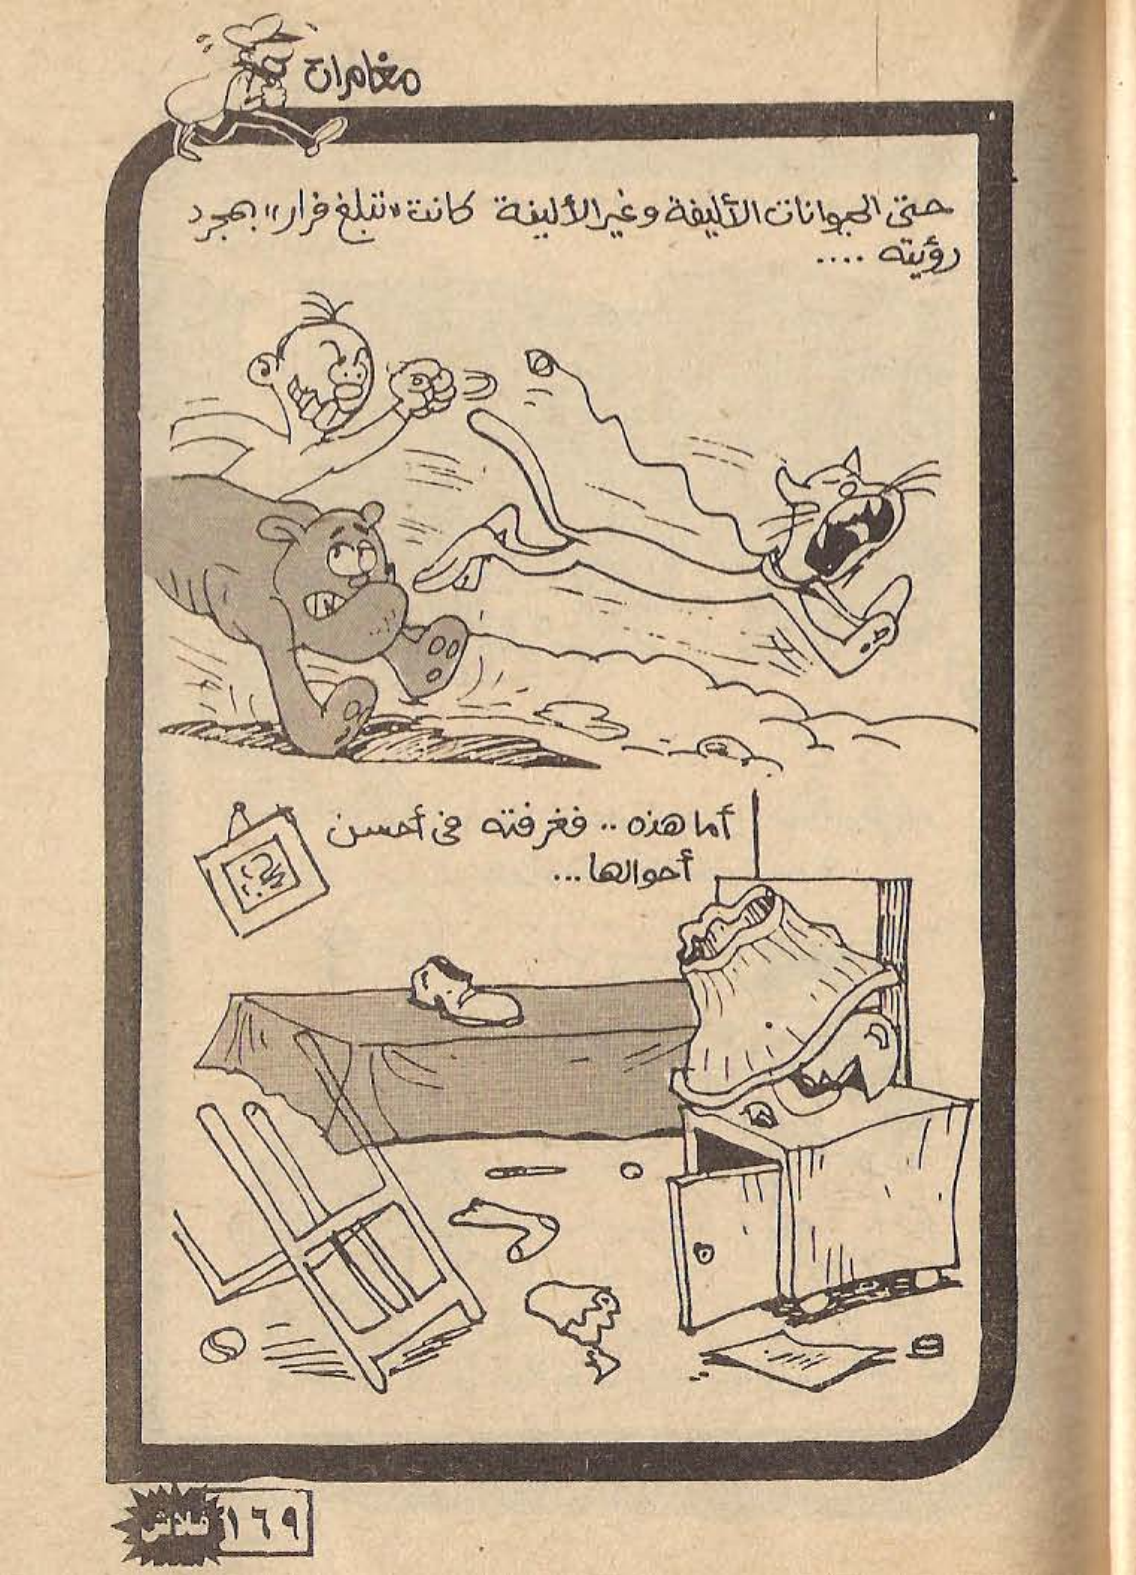 مغامرات
حتى الحيوانات الأليفة وغير الأليفة كانت «تبلغ فرار» بمجرد
رؤيته ....
أما هذه .. فغرفته فى أحسن
أحوالها ...
فلاش ١٦٩